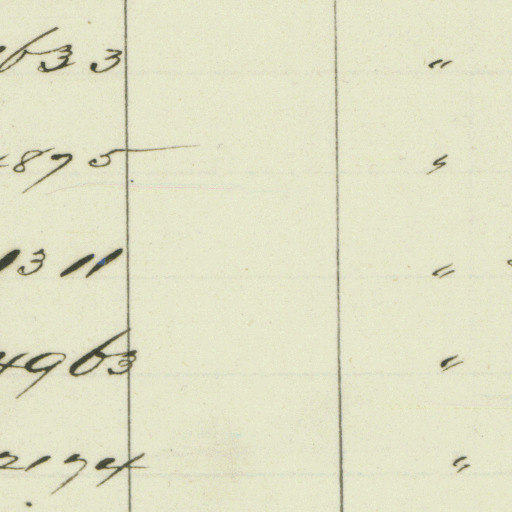 633 "
4875 "
1311 "
4963 "
2174 "